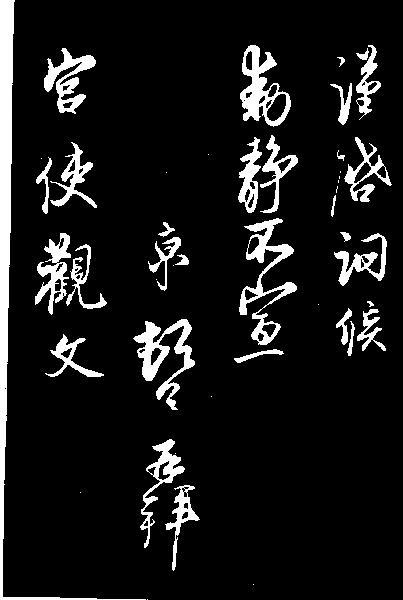 謹啓詗候
動靜不宣
京頓首再拜
宮使觀文